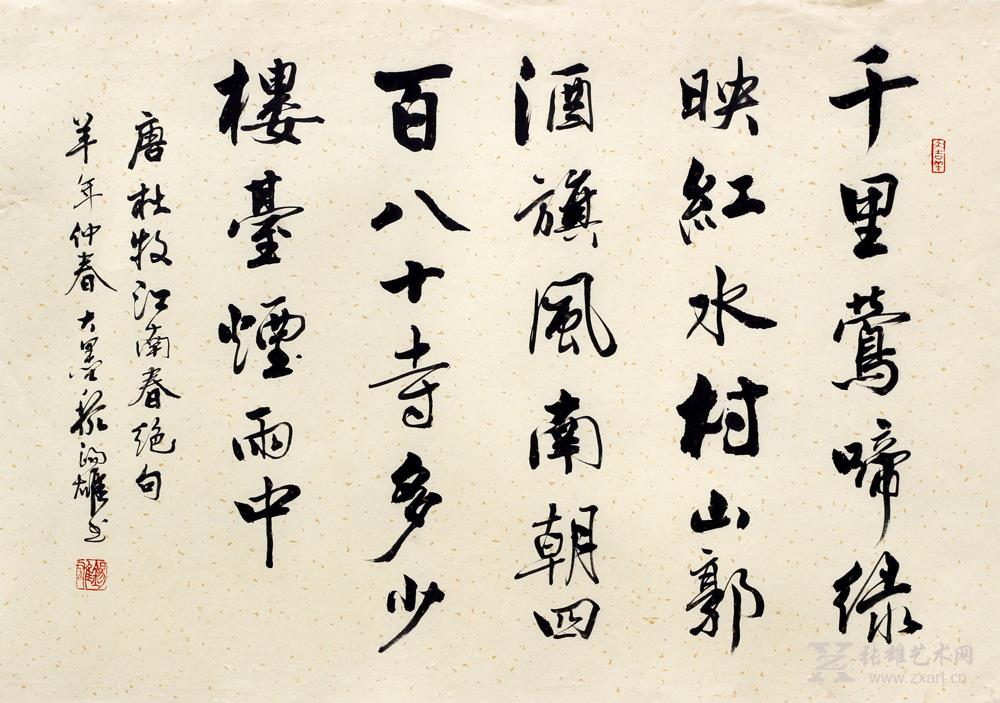 千里鶯啼綠
映紅水村山郭
酒旗風南朝四
百八十寺多少
樓臺煙雨中
唐杜牧江南春絕句
羊年仲春大墨 雄书
张雄艺术网
www.zxart.cn